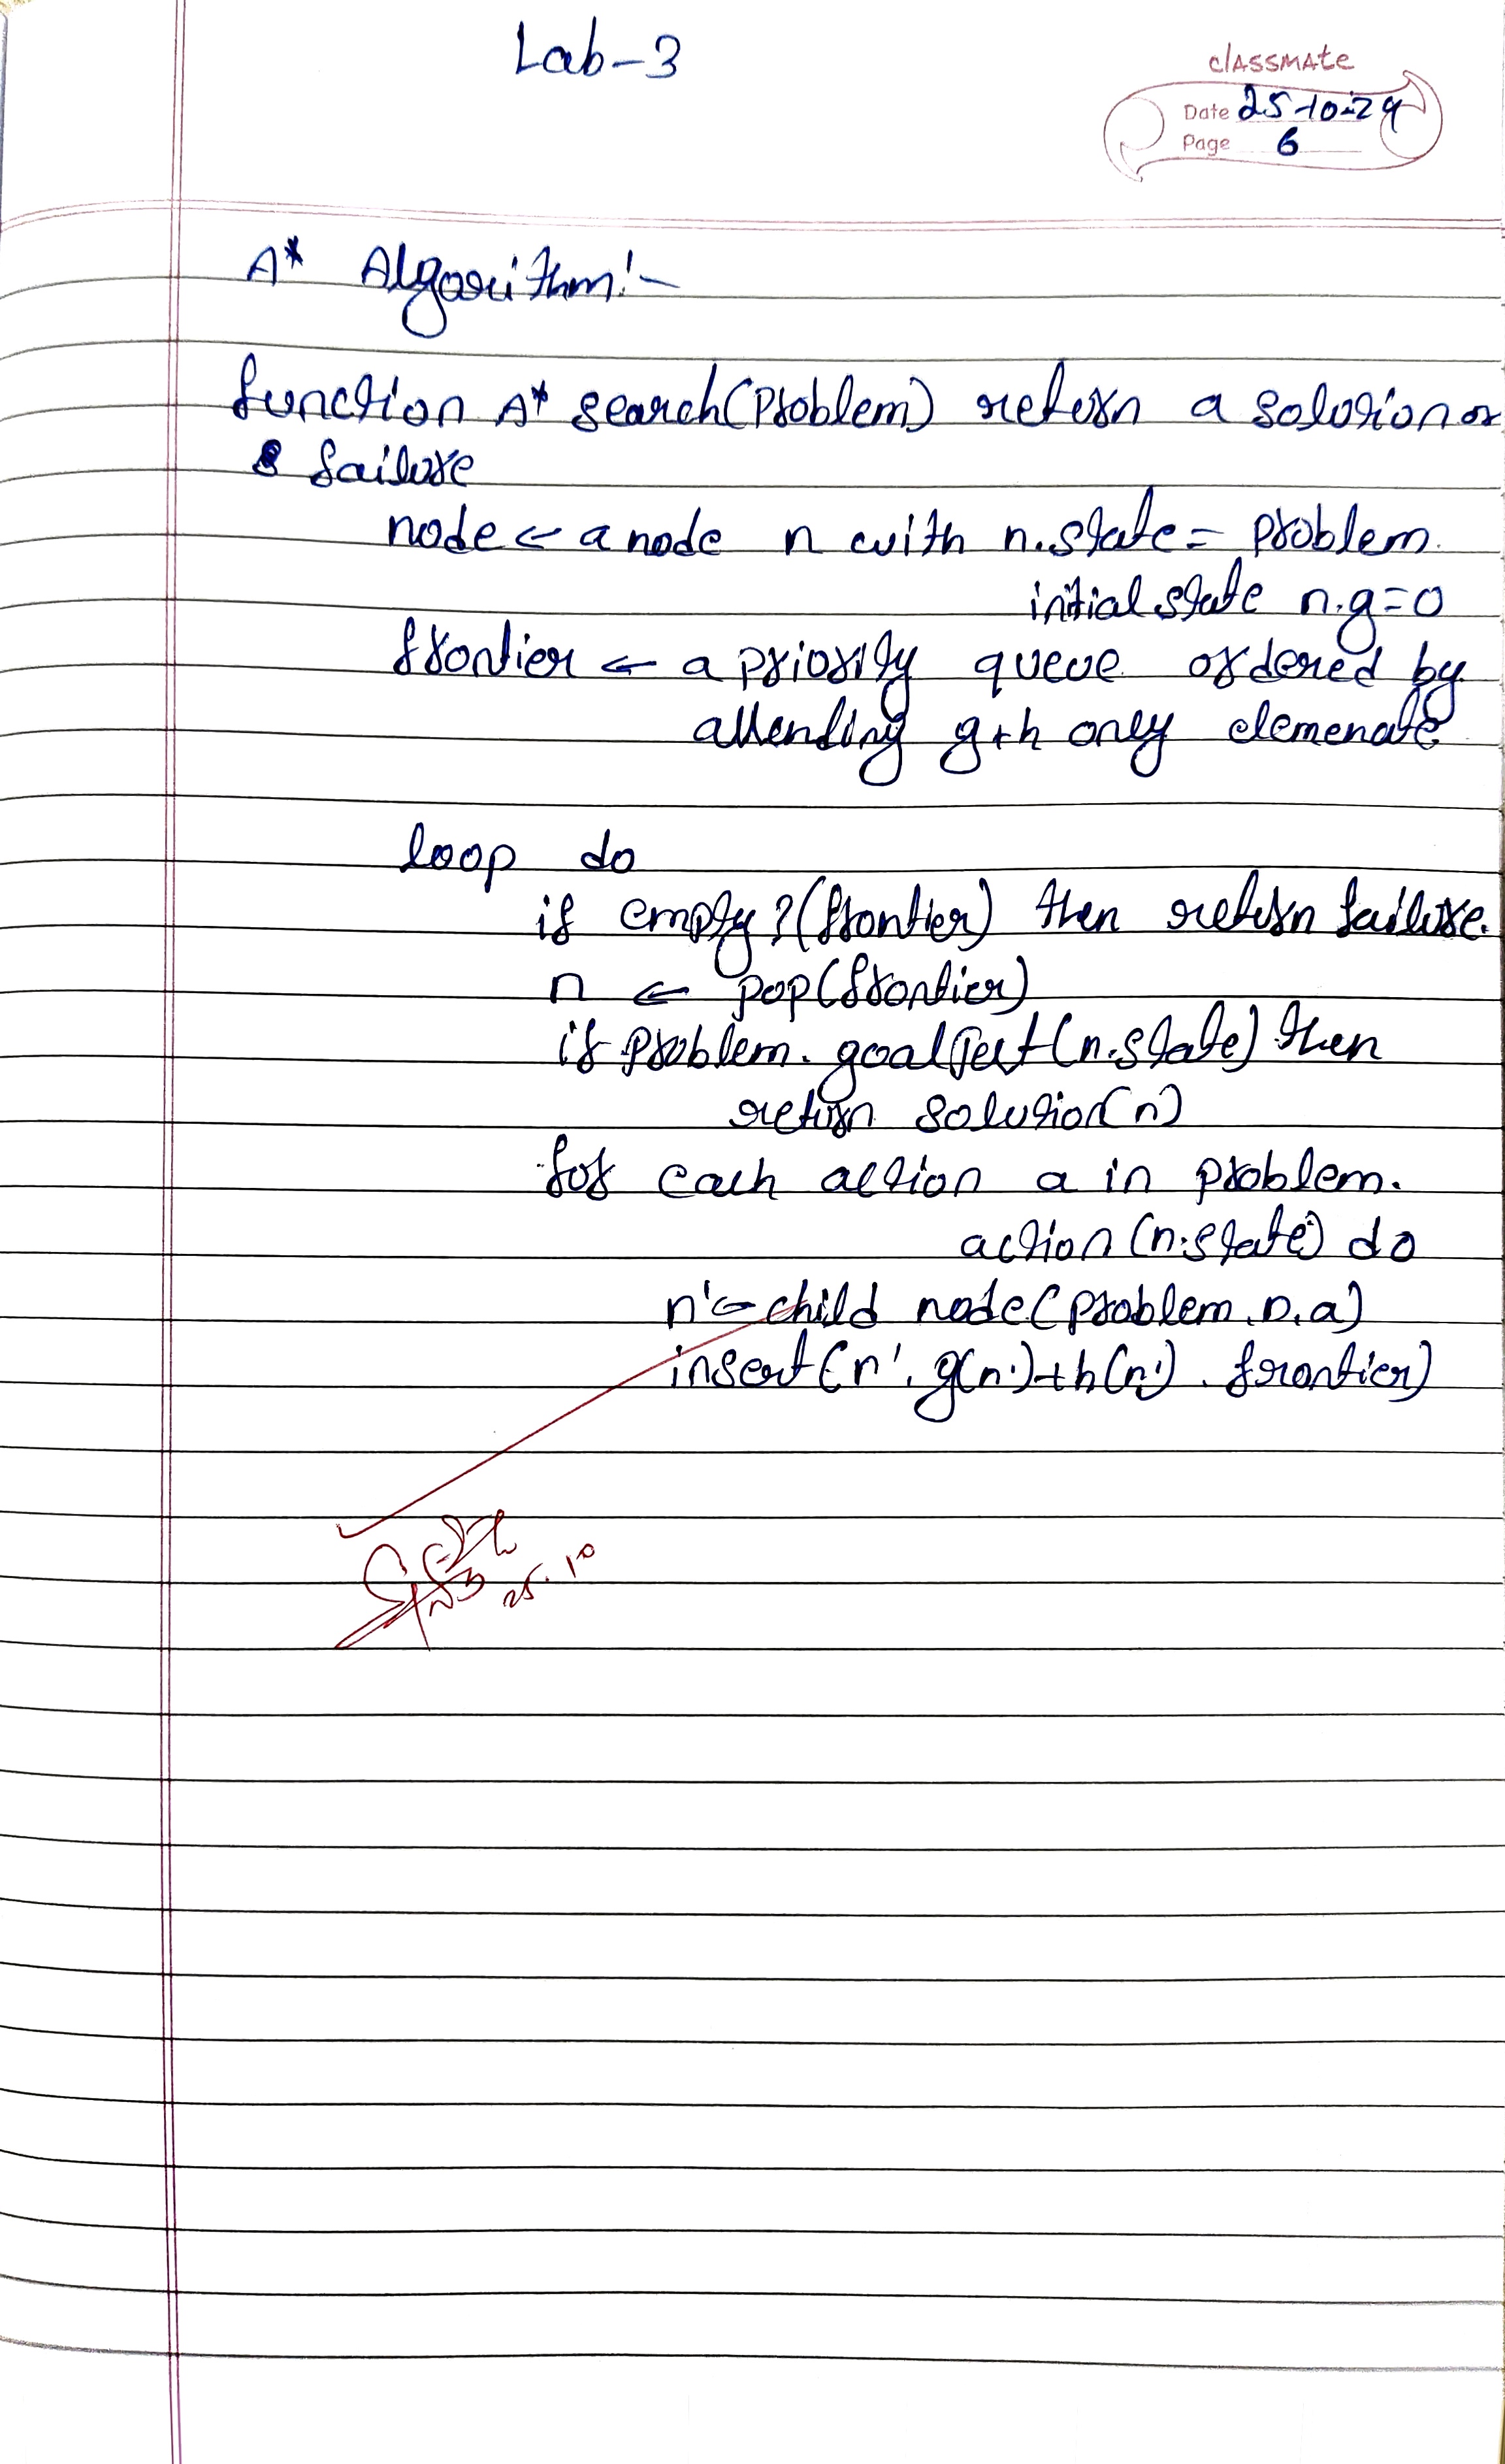 Lab-3
classmate
Date 25-10-24
Page 6
A* Algorithm:-
function A* search(Problem) return a solution or
failure
node ← a node n with n.state = problem.
initial state n.g=0
frontier ← a priority queue ordered by
attending g+h only elemenate
loop do
if empty?(frontier) then return failure.
n ← pop(frontier)
if problem.goalTest(n.state) then
return solution(n)
for each action a in problem.
action (n.state) do
n' ← child node(problem.n.a)
insert(n', g(n')+h(n'), frontier)
25.10